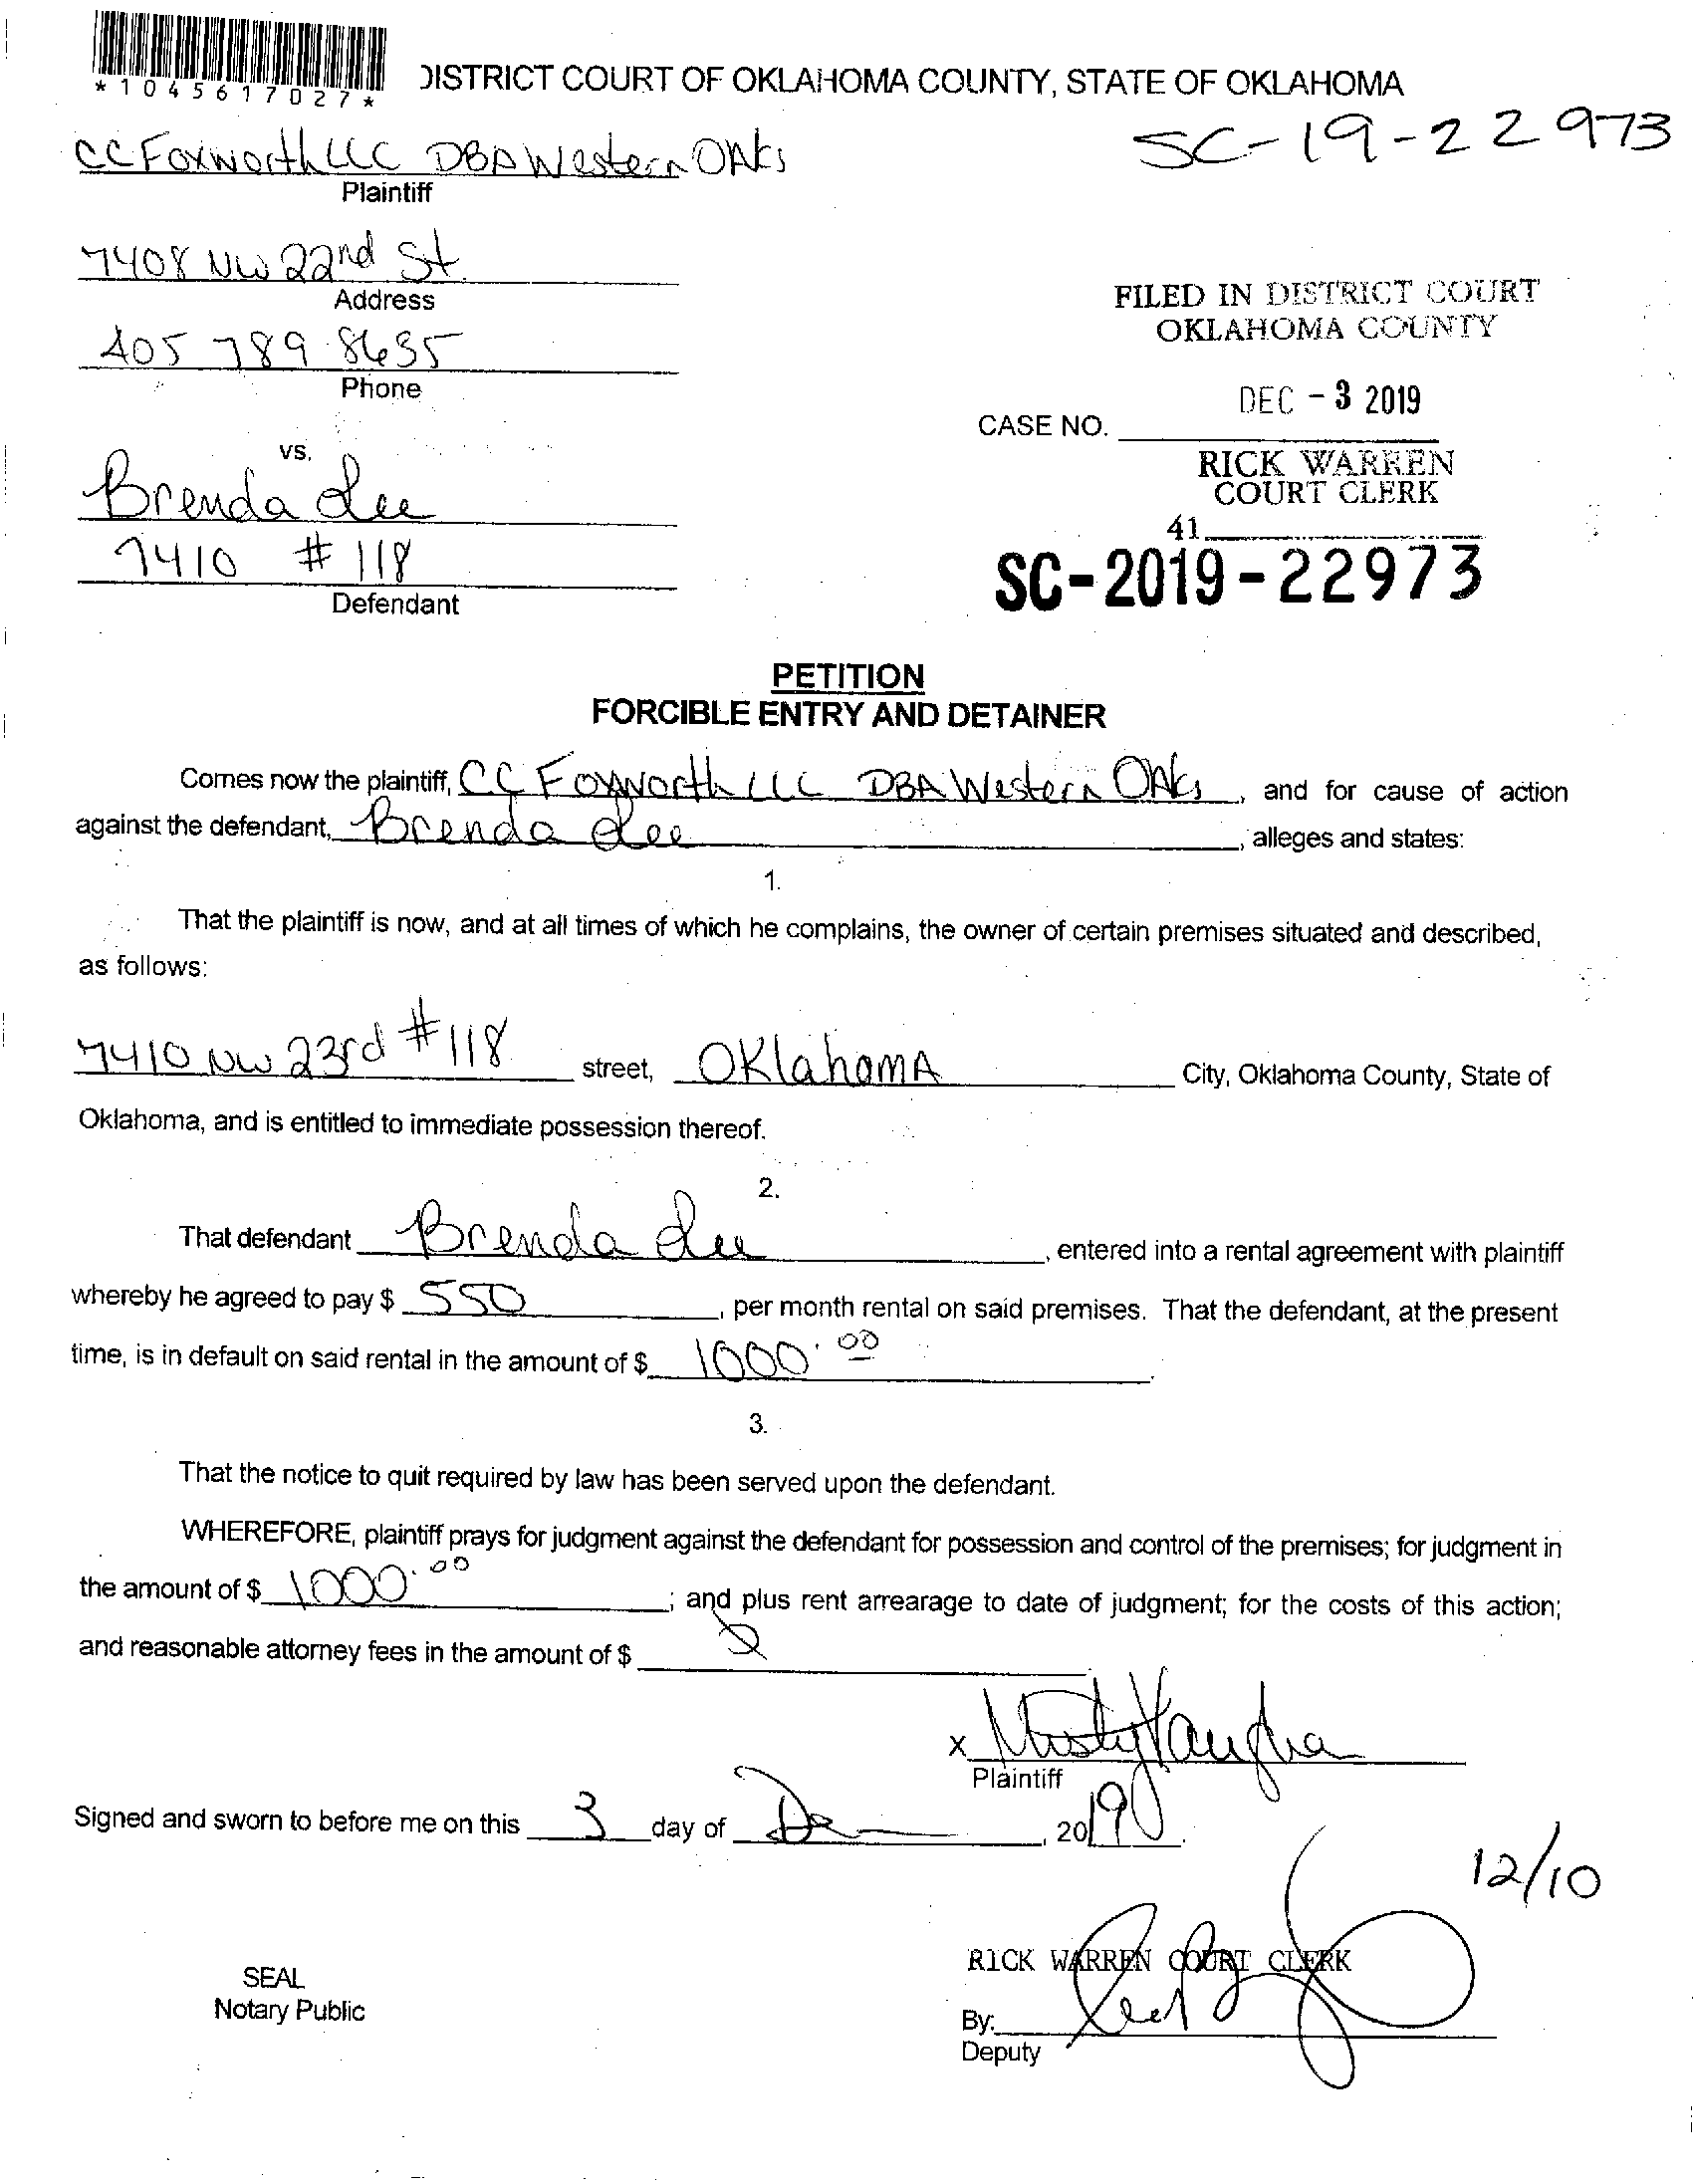 *1045617027*
DISTRICT COURT OF OKLAHOMA COUNTY, STATE OF OKLAHOMA
SC-19-22973
CC Foxworth LLC DBA Western OAks
Plaintiff
7408 NW 22nd St
Address
405 789 8635
Phone
FILED IN DISTRICT COURT
OKLAHOMA COUNTY
DEC - 3 2019
CASE NO.
RICK WARREN
COURT CLERK
41
SC-2019-22973
vs.
Brenda Lee
7410 #118
Defendant
PETITION
FORCIBLE ENTRY AND DETAINER
Comes now the plaintiff, CC Foxworth LLC DBA Western OAks, and for cause of action
against the defendant, Brenda Lee, alleges and states:
1.
That the plaintiff is now, and at all times of which he complains, the owner of certain premises situated and described,
as follows:
7410 NW 23rd #118 street, OKlahomA City, Oklahoma County, State of
Oklahoma, and is entitled to immediate possession thereof.
2.
That defendant Brenda Lee, entered into a rental agreement with plaintiff
whereby he agreed to pay $ 550, per month rental on said premises. That the defendant, at the present
time, is in default on said rental in the amount of $ 1000.00.
3.
That the notice to quit required by law has been served upon the defendant.
WHEREFORE, plaintiff prays for judgment against the defendant for possession and control of the premises; for judgment in
the amount of $ 1000.00; and plus rent arrearage to date of judgment; for the costs of this action;
and reasonable attorney fees in the amount of $
x Misty Vaughan
Plaintiff
Signed and sworn to before me on this 3 day of De, 2019.
12/10
RICK WARREN COURT CLERK
SEAL
Notary Public
By:
Deputy